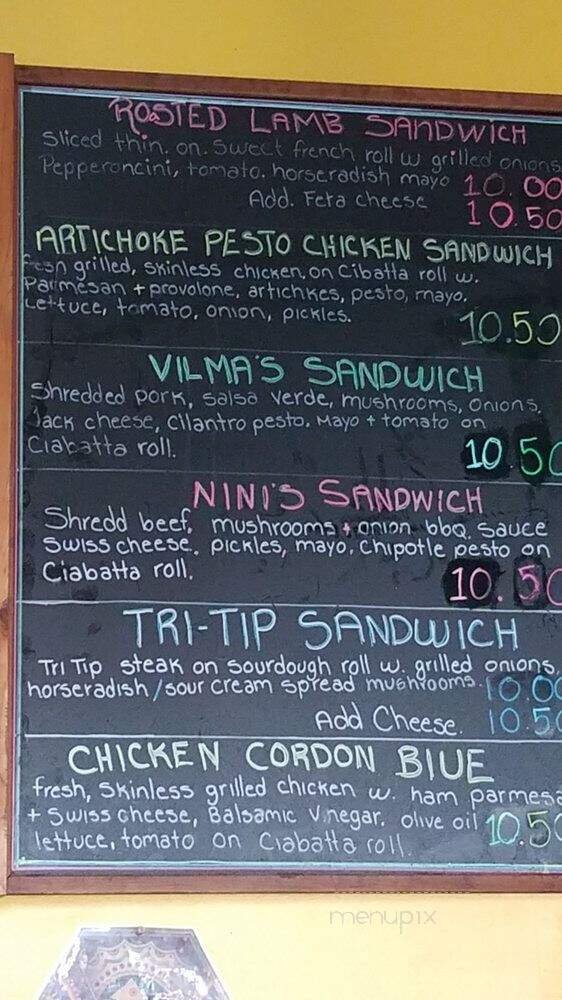 ROSTED LAMB SANDWICH
Sliced thin. on. Sweet french roll w grilled onions
Pepperoncini, tomato. horseradish mayo 10.00
Add. Feta cheese 10.50
ARTICHOKE PESTO CHICKEN SANDWICH
Fesn grilled, skinless chicken, on Cibatta roll w.
Parmesan + provolone, artichkes, pesto, mayo.
Lettuce, tomato, onion, pickles. 10.50
VILMA'S SANDWICH
Shredded pork, Salsa verde, mushrooms, onions.
Jack cheese, Cilantro pesto. Mayo + tomato on
Ciabatta roll. 10.50
NINI'S SANDWICH
Shredd beef, mushrooms + onion bbq. sauce
Swiss cheese. pickles, mayo. Chipotle pesto on
Ciabatta roll. 10.50
TRI-TIP SANDWICH
Tri Tip steak on sourdough roll w. grilled onions,
horseradish/sour cream spread mushrooms. 10.00
Add Cheese. 10.50
CHICKEN CORDON BlUE
fresh, Skinless grilled chicken w. ham parmesa
+ Swiss cheese, Balsamic Vinegar, olive oil 10.50
lettuce, tomato on Ciabatta roll.
menupix